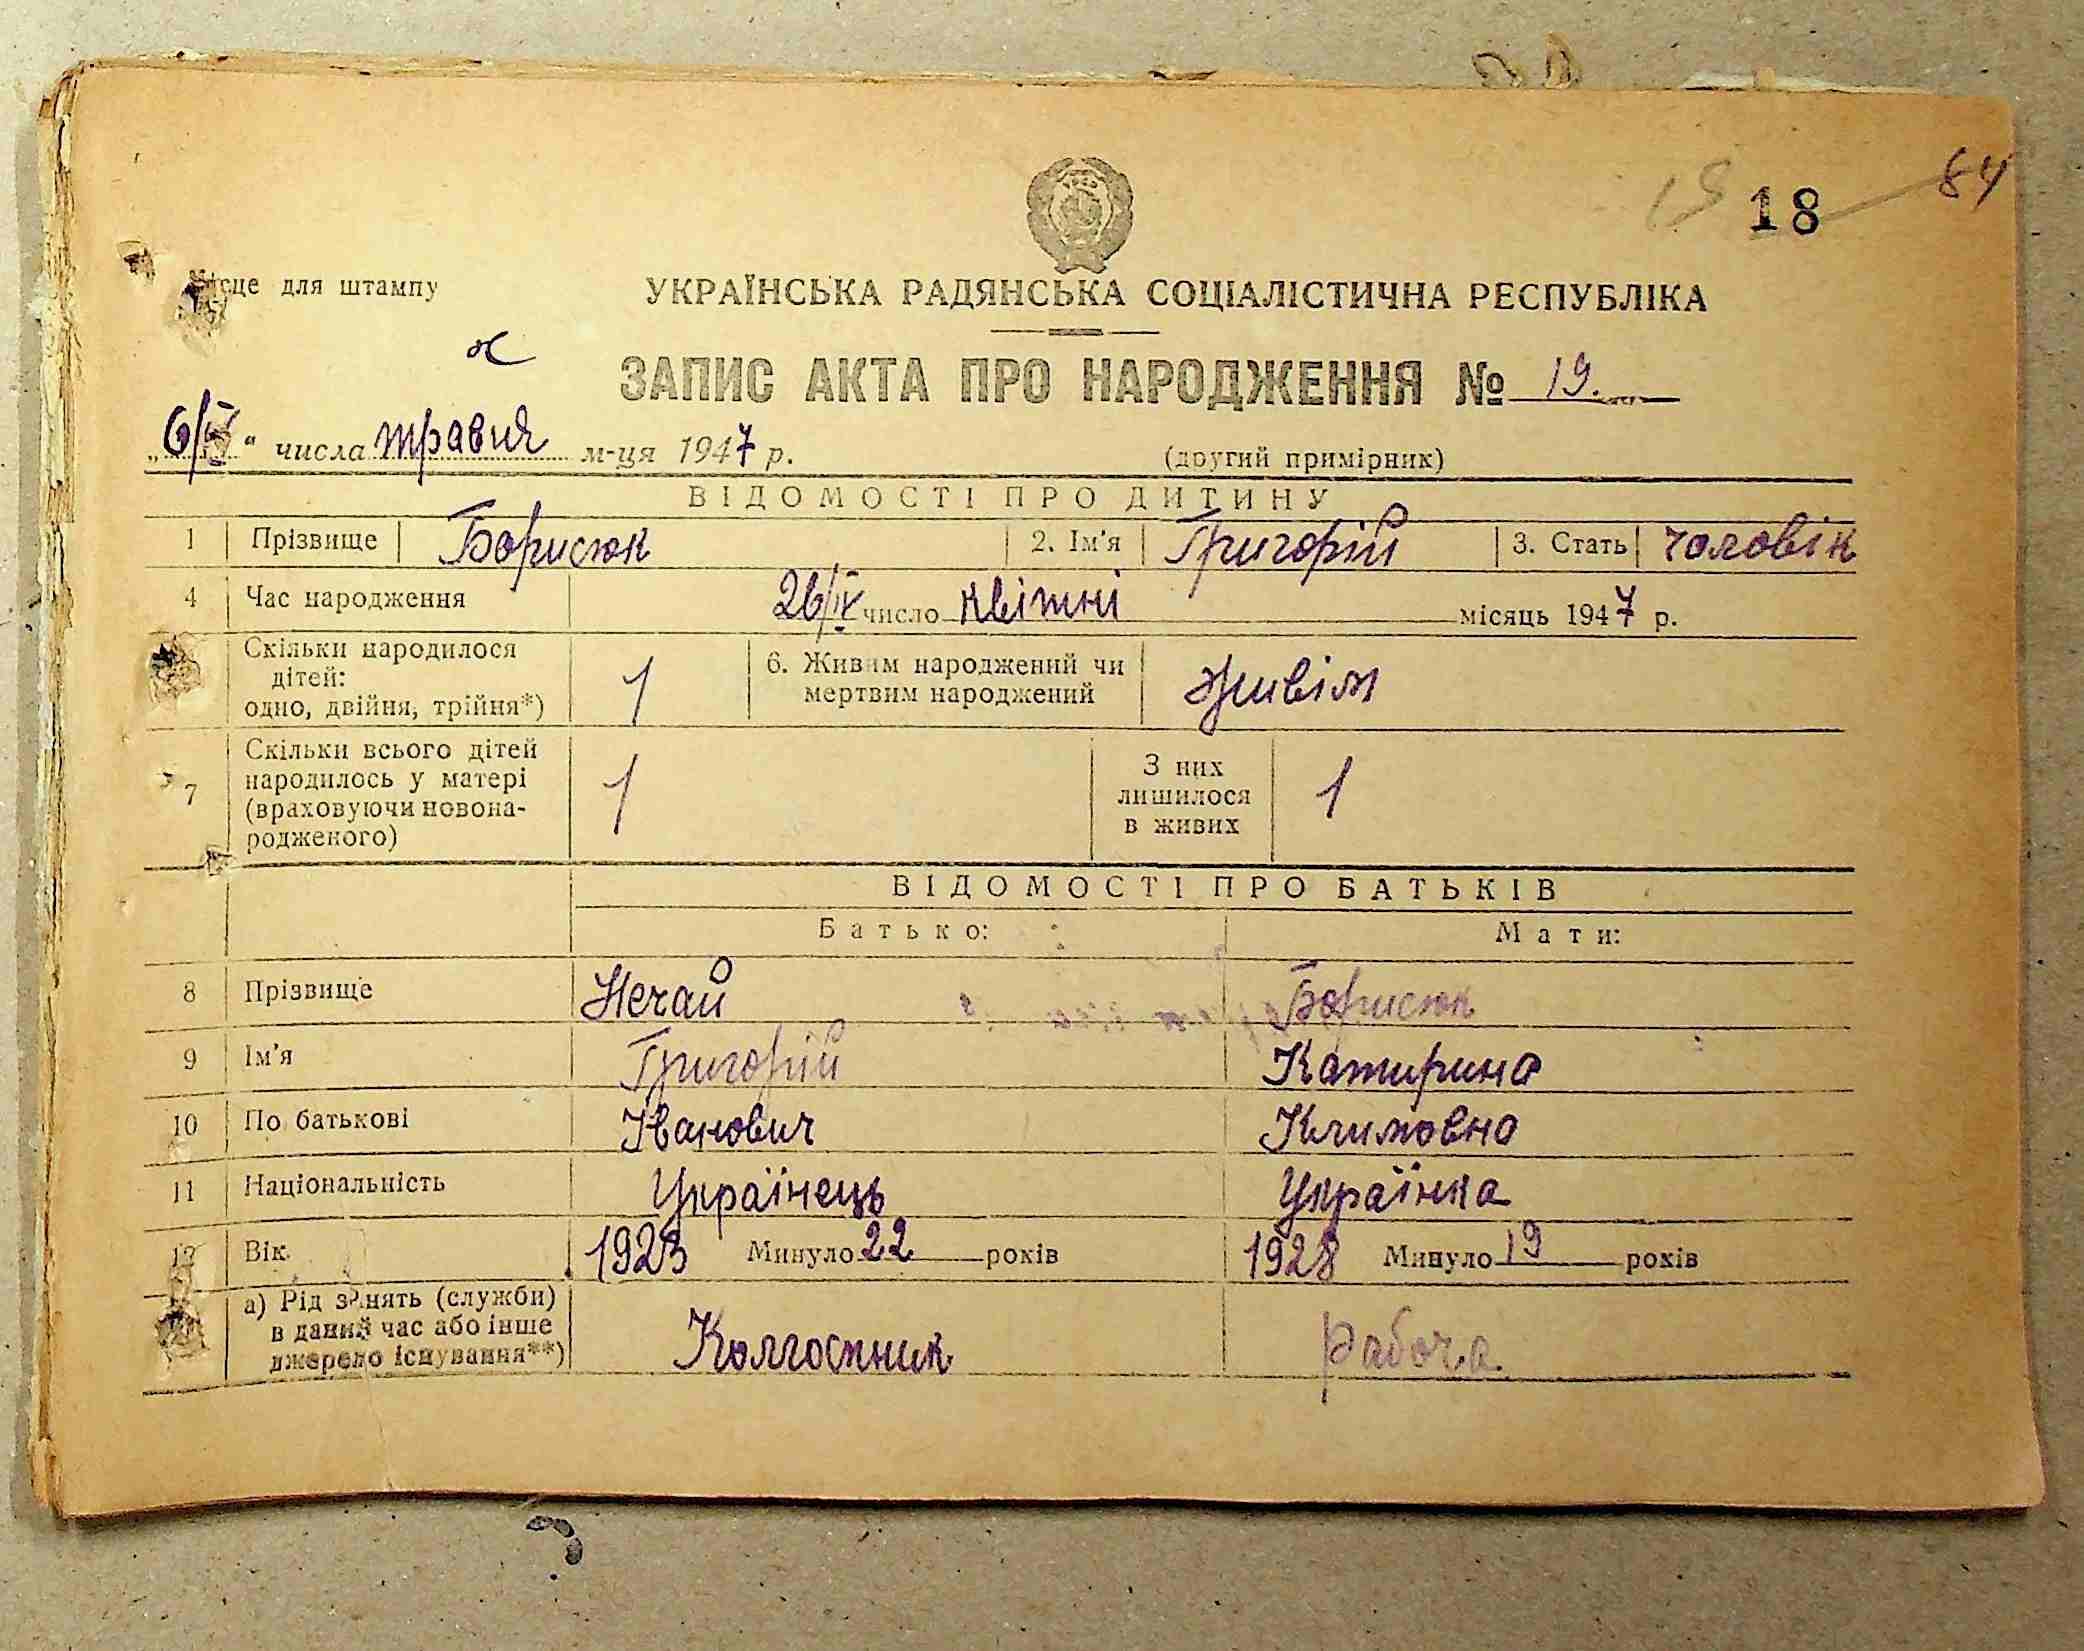 18 84
Місце для штампу
УКРАЇНСЬКА РАДЯНСЬКА СОЦІАЛІСТИЧНА РЕСПУБЛІКА
ЗАПИС АКТА ПРО НАРОДЖЕННЯ № 19.
„6/V“ числа травня м-ця 1947 р.
(другий примірник)
ВІДОМОСТІ ПРО ДИТИНУ
1 Прізвище Борисюк 2. Ім'я Григорій 3. Стать чоловік
4 Час народження 26/IV число квітні місяць 1947 р.
Скільки народилося
дітей:
одно, двійня, трійня*)
1
6. Живим народжений чи
мертвим народжений
живім
7
Скільки всього дітей
народилось у матері
(враховуючи новона-
родженого)
1
З них
лишилося
в живих
1
ВІДОМОСТІ ПРО БАТЬКІВ
Батько: Мати:
8 Прізвище Нечай Борисюк
9 Ім'я Григорій Катирина
10 По батькові Іванович Климовна
11 Національність Українець Українка
12 Вік 1923 Минуло 22 років 1928 Минуло 19 років
а) Рід занять (служби)
в даний час або інше
джерело існування**)
Колгоспник Рабоча